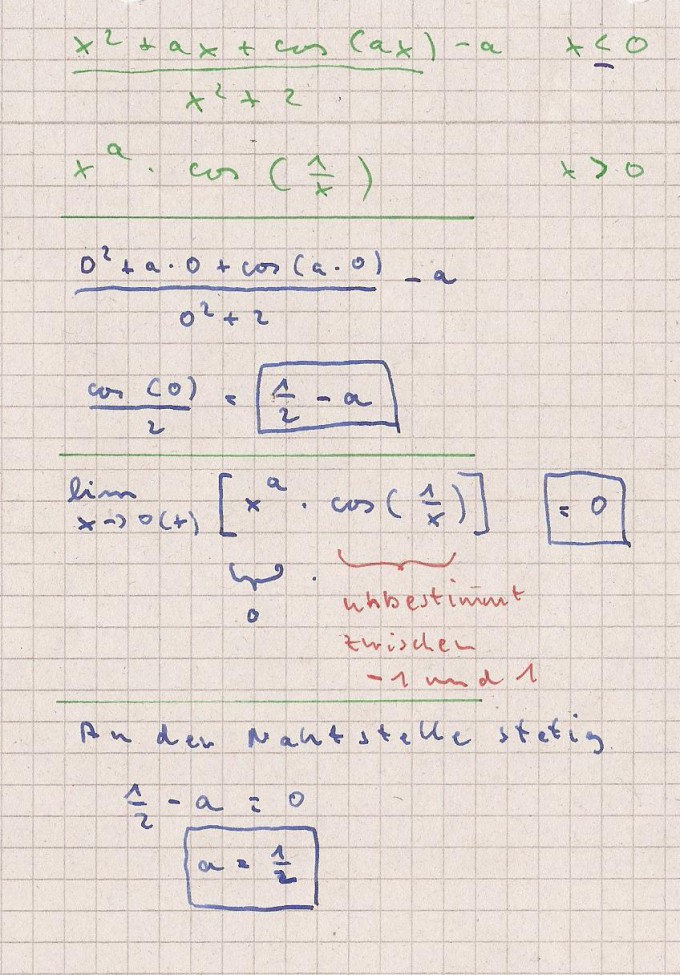 x² + ax + cos (ax) - a x ≤ 0
x² + 2
x^a · cos (1/x) x > 0
0² + a · 0 + cos (a · 0) - a
0² + 2
cos (0) / 2 = 1/2 - a
lim x→0(+) [x^a · cos (1/x)] = 0
0 · unbestimmt
zwischen
-1 und 1
An der Nahtstelle stetig
1/2 - a = 0
a = 1/2